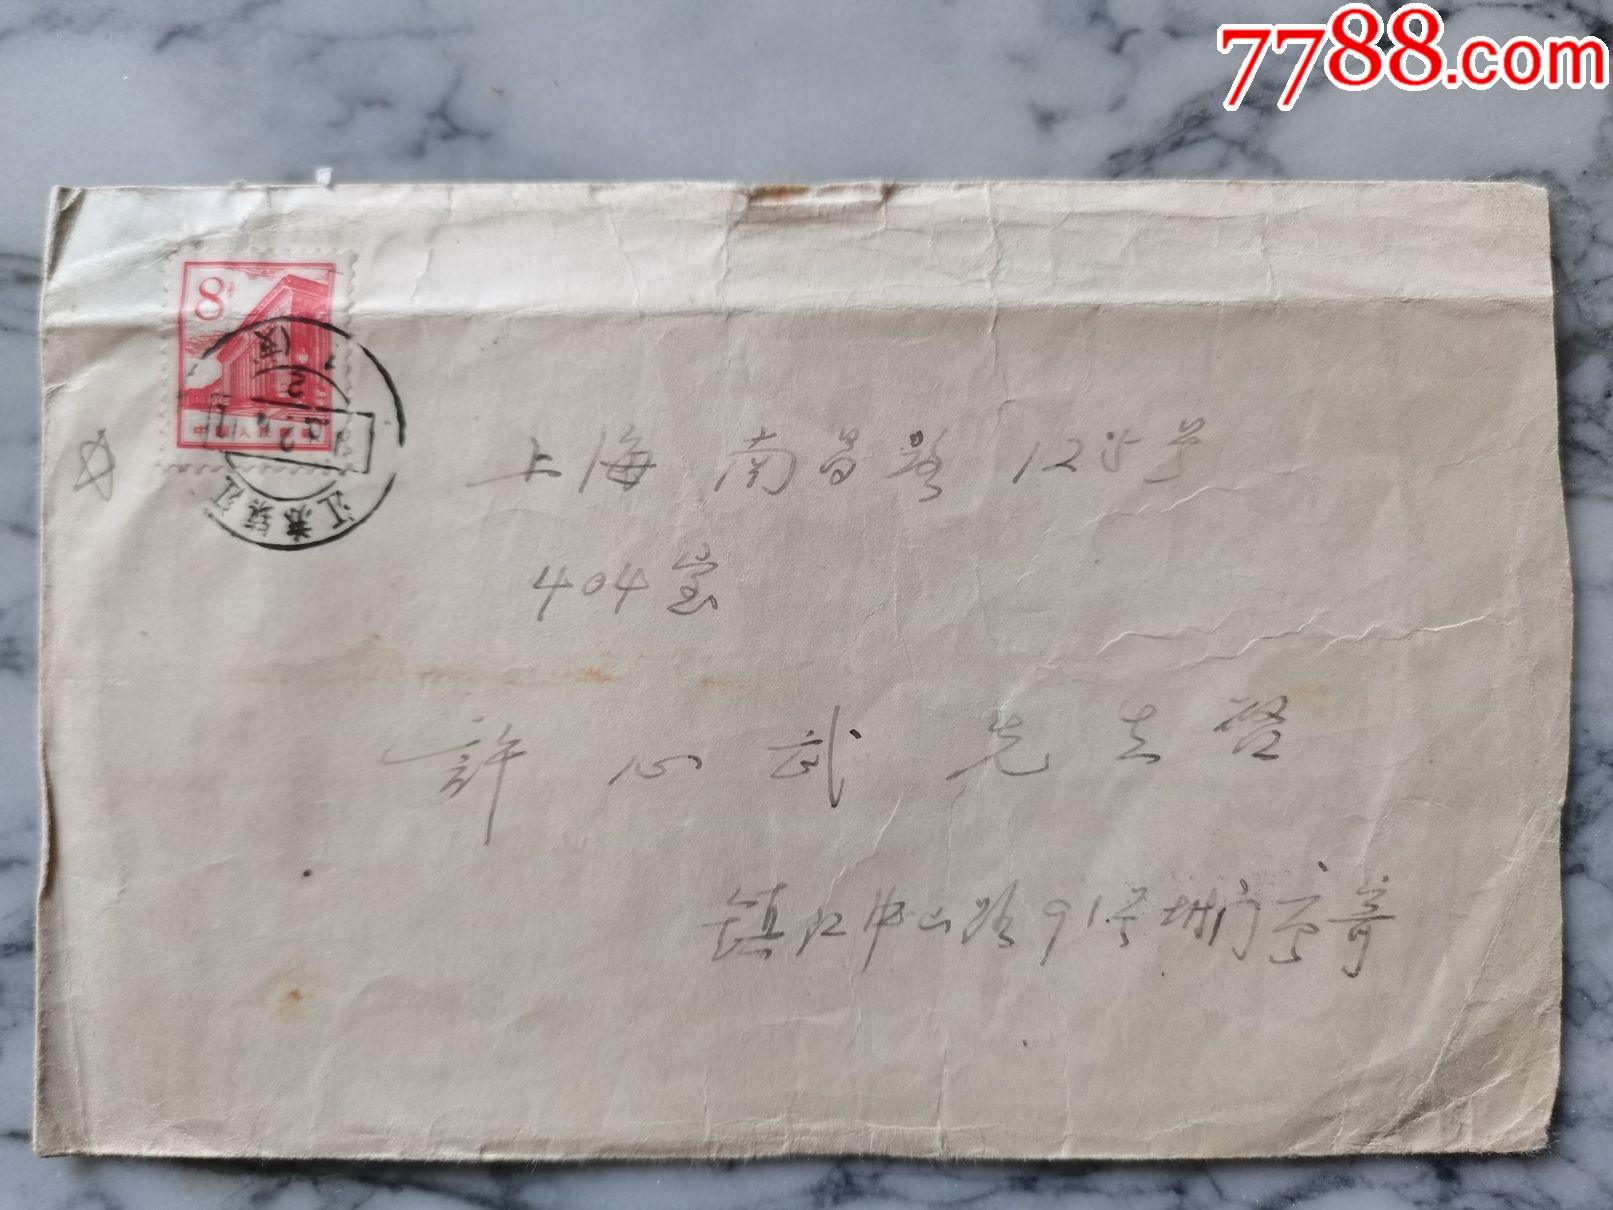 7788.com
8
中国人民邮政
江苏镇江
上海 南昌路 125号
404室
許心武 先生啓
镇江中山路91号 寄